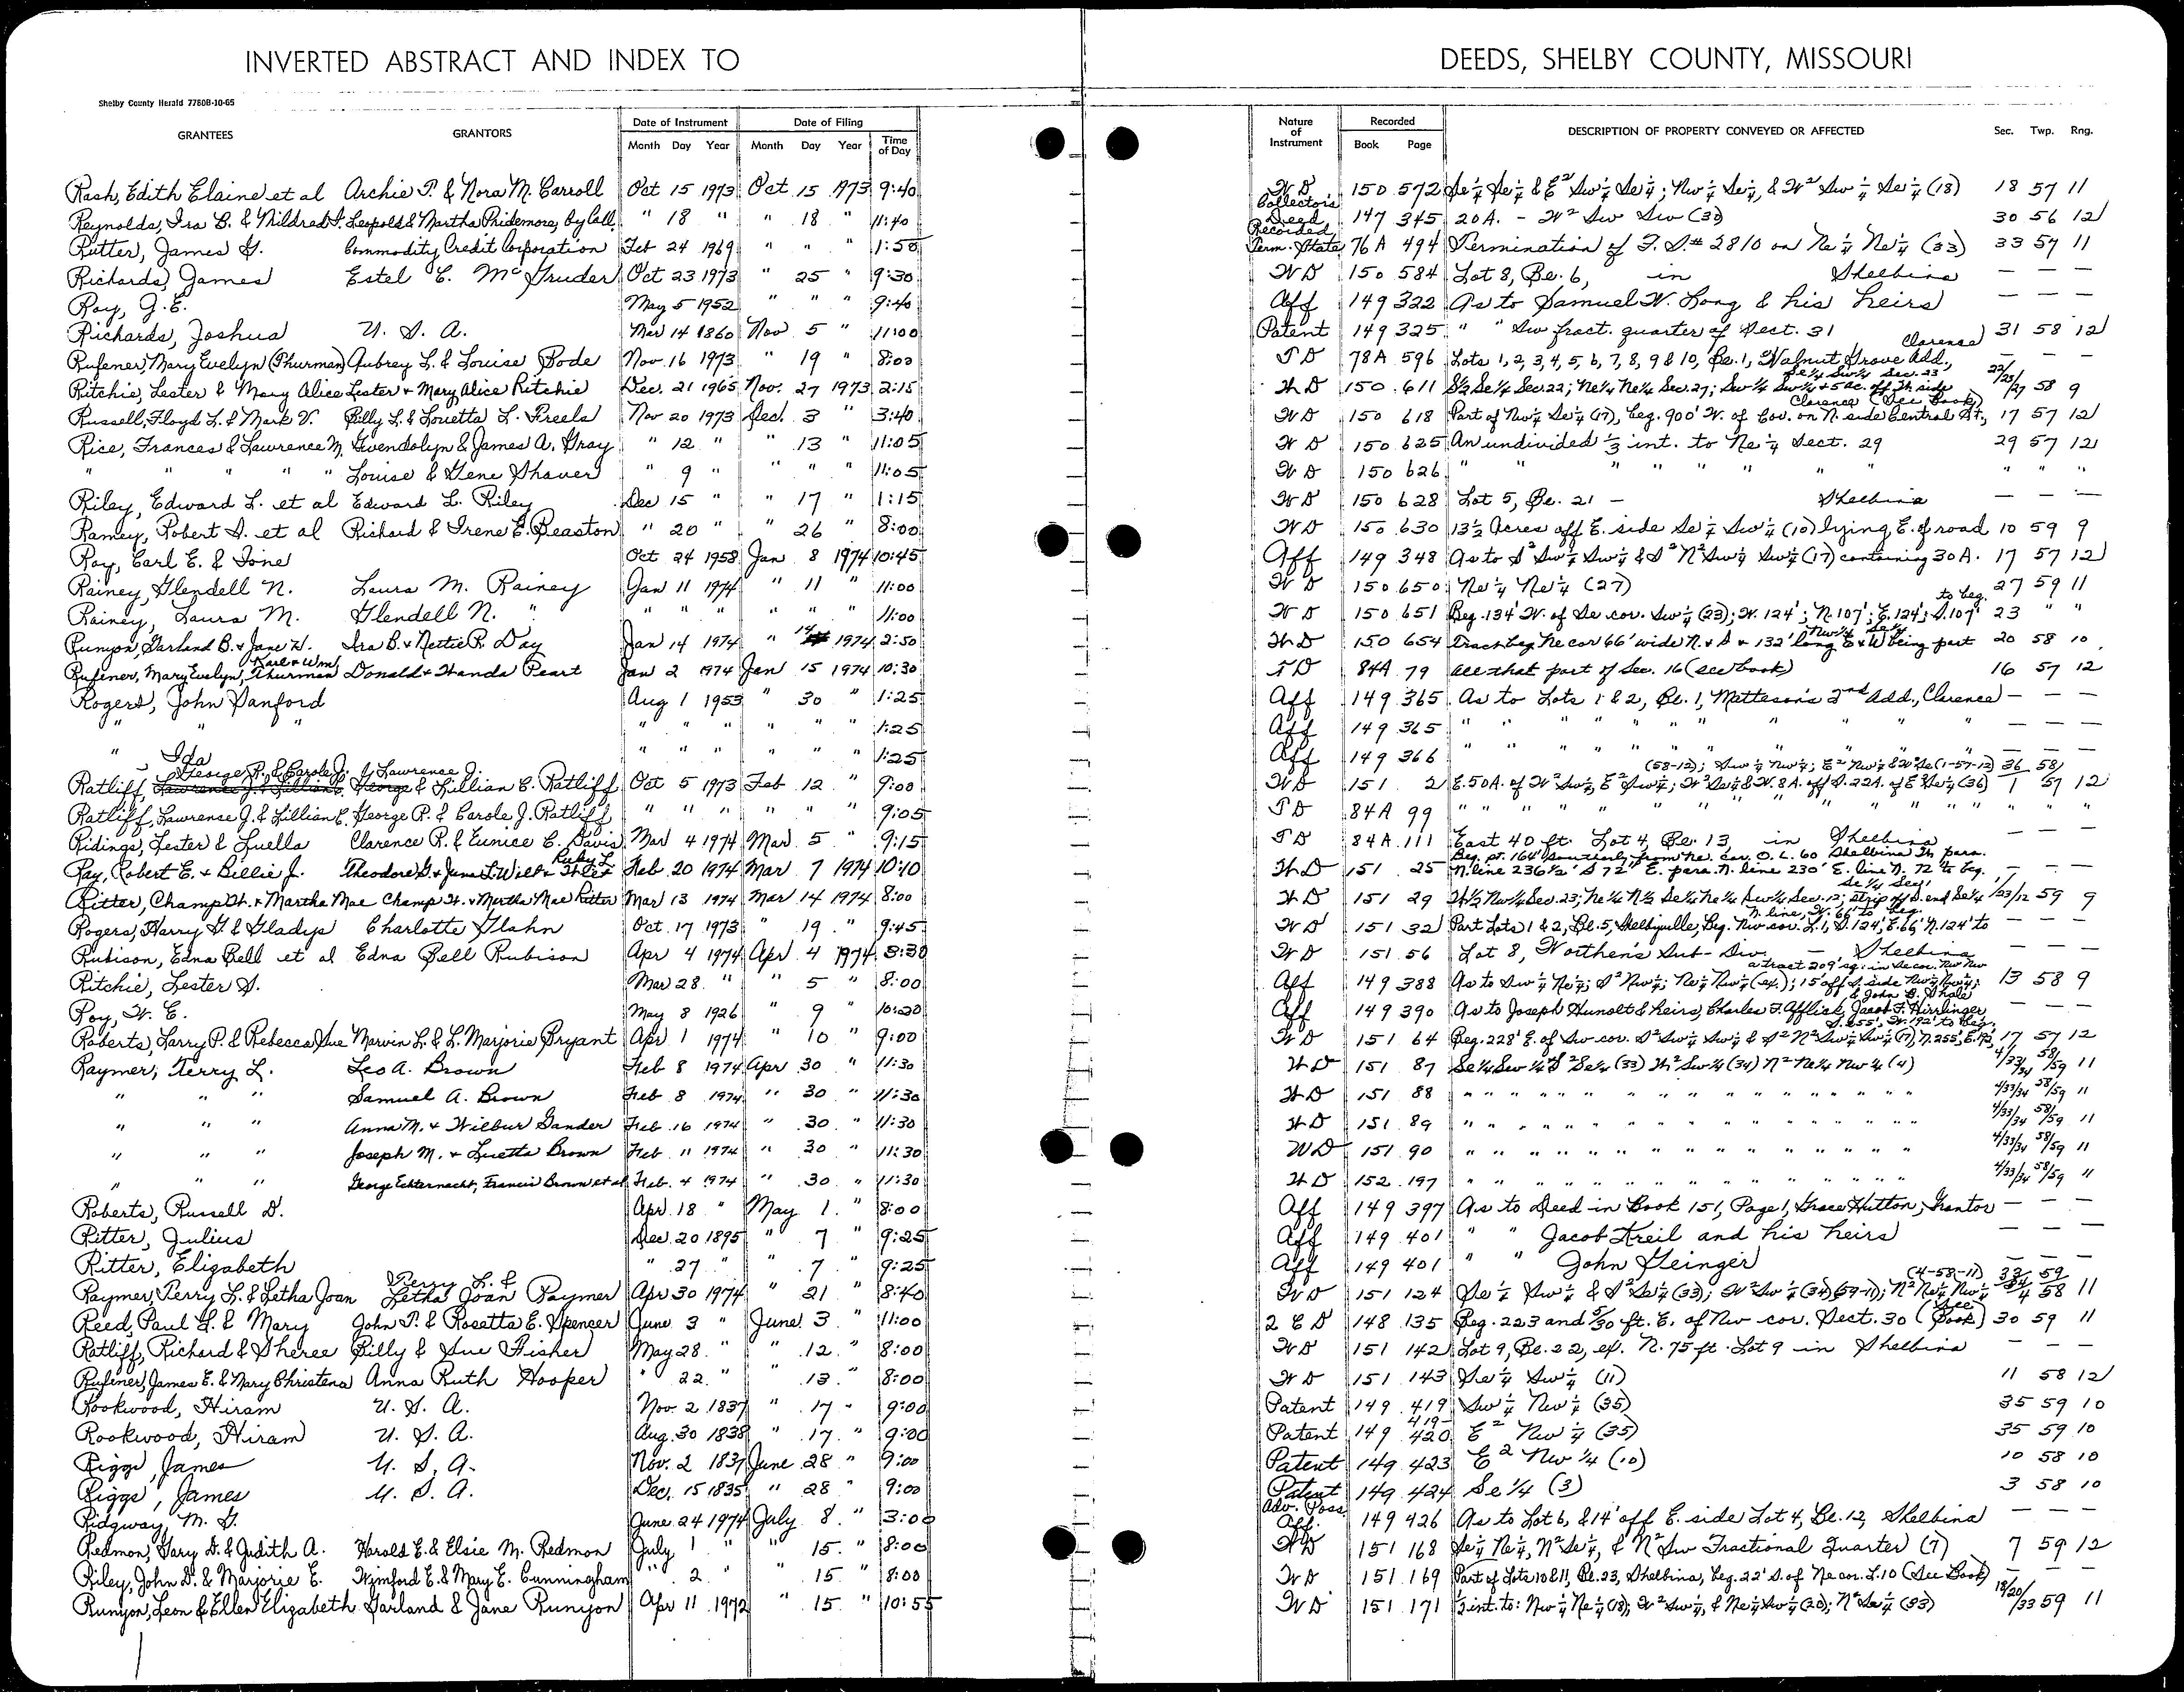 INVERTED ABSTRACT AND INDEX TO DEEDS, SHELBY COUNTY, MISSOURI
Shelby County Herald 7780B-10-65
GRANTEES GRANTORS Date of Instrument Date of Filing Nature of Instrument Recorded DESCRIPTION OF PROPERTY CONVEYED OR AFFECTED Sec. Twp. Rng.
Month Day Year Month Day Year Time of Day Book Page
Rash, Edith Elaine et al Archie T. & Nora M. Carroll Oct 15 1973 Oct. 15 1973 9:40 WD 150 572 Se¼ Se¼ & E² Sw¼ Se¼; Nw¼ Se¼, & W² Sw¼ Se¼ (18) 18 57 11
Reynolds, Ira B. & Mildred F. Leopold & Martha Pridemore, by Coll. " 18 " " 18 " 11:40 Collector's Deed 147 345 20 A. - W² Sw Sw (30) 30 56 12
Rutter, James G. Commodity Credit Corporation Feb 24 1969 " " " 1:50 Recorded Term. State 76A 494 Termination of F.S.# 2810 on Ne¼ Ne¼ (33) 33 57 11
Richards, James Estel E. McGruder Oct 23 1973 " 25 " 9:30 WD 150 584 Lot 8, Be. 6, in Shelbina — — —
Roy, G.E. May 5 1952 " " " 9:40 Aff 149 322 As to Samuel W. Long & his heirs — — —
Richards, Joshua U. S. A. Mar 14 1860 Nov 5 " 11:00 Patent 149 325 " " Sw fract. quarter of Sect. 31 31 58 12
Rufener, Mary Evelyn (Thurman) Aubrey L. & Louise Bode Nov 16 1973 " 19 " 8:00 TD 78A 596 Lots 1, 2, 3, 4, 5, 6, 7, 8, 9 & 10, Be. 1, Walnut Grove Add., Clarence — — —
Ritchie, Lester & Mary Alice Lester & Mary Alice Ritchie Dec. 21 1965 Nov. 27 1973 2:15 WD 150 611 S½ Se¼ Sec. 22; Ne¼ Ne¼ Sec. 27; Sw¼ Sw¼ + 5 ac. off W side Se¼ Sw¼ Sec. 23 22/23/27 58 9
Russell, Floyd L. & Mark V. Billy L. & Louetta L. Freels Nov 20 1973 Dec. 3 " 3:40 WD 150 618 Part of Nw¼ Se¼ (17), beg. 900' W. of Cor. on N. side Central St., Clarence (See Book) 17 57 12
Rice, Frances & Lawrence M. Gwendolyn & James A. Gray " 12 " " 13 " 11:05 WD 150 625 An undivided ⅓ int. to Ne¼ Sect. 29 29 57 12
" " " " " Louise & Gene Shaver " 9 " " " " 11:05 WD 150 626 " " " " " " " " " " "
Riley, Edward L. et al Edward L. Riley Dec 15 " " 17 " 1:15 WD 150 628 Lot 5, Be. 21 - Shelbina — — —
Ramey, Robert D. et al Richard & Irene E. Beaston " 20 " " 26 " 8:00 WD 150 630 13½ Acres off E. side Se¼ Sw¼ (10) lying E. of road 10 59 9
Roy, Carl E. & Ione Oct 24 1958 Jan 8 1974 10:45 Aff 149 348 As to S² Sw¼ Sw¼ & S² N² Sw¼ Sw¼ (17) containing 30 A. 17 57 12
Rainey, Glendell N. Laura M. Rainey Jan 11 1974 " 11 " 11:00 WD 150 650 Ne¼ Ne¼ (27) 27 59 11
Rainey, Laura M. Glendell N. " " " " " " " 11:00 WD 150 651 Beg. 134' W. of Se cor. Sw¼ (23); W. 124'; N. 107'; E. 124'; S. 107' to beg. 23 " "
Runyon, Garland B. & Jane W. Ira B. & Nettie R. Day Jan 14 1974 " 14 1974 2:50 WD 150 654 Tract beg. Ne cor 66' wide N. & S & 132' long E & W being part Nw¼ Se¼ 20 58 10
Rufener, Mary Evelyn, Thurman Karl & Wm Donald & Wanda Peart Jan 2 1974 Jan 15 1974 10:30 TD 84A 79 All that part of Sec. 16 (see book) 16 57 12
Rogers, John Sanford Aug 1 1953 " 30 " 1:25 Aff 149 365 As to Lots 1 & 2, Be. 1, Matteson's 2nd Add., Clarence — — —
" " " " " " " " 1:25 Aff 149 365 " " " " " " " " — — —
" Ida " " " " " " 1:25 Aff 149 366 " " " " " " " " — — —
Ratliff, George P. & Carole J. Lawrence J. & Lillian E. Ratliff Oct 5 1973 Feb 12 " 9:00 WD 151 2 E. 50 A. of W² Sw¼, E² Sw¼; W² Se¼ & W. 8 A. off S. 22 A. of E² Se¼ (36) (58-12); Sw¼ Nw¼; E² Nw¼ & W² Se (1-57-12) 36 58 1 57 12
Ratliff, Lawrence J. & Lillian E. George P. & Carole J. Ratliff " " " " " " 9:05 TD 84A 99 " " " " " " " " " " "
Ridings, Lester & Luella Clarence P. & Eunice E. Davis Mar 4 1974 Mar. 5 " 9:15 TD 84A 111 East 40 ft. Lot 4, Be. 13, in Shelbina — — —
Ray, Robert E. & Billie J. Theodore G. & June L. Wilt & Ruby L. Feb 20 1974 Mar 7 1974 10:10 WD 151 25 Beg. pt. 164' southerly from Ne. cor. O. L. 60 Shelbina Th para. N. line 236½' S 72' E. para. N. line 230' E. line N. 72' to beg. — — —
Ritter, Champ W. & Martha Mae Champ W. & Martha Mae Ritter Mar 13 1974 Mar 14 1974 8:00 WD 151 29 W½ Nw¼ Sec. 23; Ne¼ N½ Se¼ Ne¼ Sw¼ Sec. 12; strip off S. end Se¼ Se¼ Sec. 1 1/23/12 59 9
Rogers, Harry G. & Gladys Charlotte Glahn Oct. 17 1973 " 19 " 9:45 WD 151 32 Part Lots 1 & 2, Bl. 5, Shelbyville, Beg. Nw cor. L. 1, S. 124', E. 66' N. 124' to N. line, W. 66' to beg. — — —
Rubison, Edna Bell et al Edna Bell Rubison Apr 4 1974 Apr 4 1974 3:30 WD 151 56 Lot 8, Worthen's Sub-Div. — Shelbina — — —
Ritchie, Lester S. Mar 28 " " 5 " 8:00 Aff 149 388 As to Sw¼ Ne¼; S² Nw¼; Ne¼ Nw¼ (ex.); 15' off S. side Nw¼ Nw¼; a tract 209' sq. in Se cor. Nw Nw 13 58 9
Roy, W. E. May 8 1926 " 9 " 10:20 Aff 149 390 As to Joseph Hunolt & heirs, Charles F. Afflick, Jacob F. Hirrlinger, & John B. Shale — — —
Roberts, Larry P. & Rebecca Sue Marvin L. & L. Marjorie Bryant Apr 1 1974 " 10 " 9:00 WD 151 64 Beg. 228' E. of Sw cor. S² Sw¼ Sw¼ & S² N² Sw¼ Sw¼ (17) N. 255', E. 192', S. 255', W. 192' to beg. 17 57 12
Raymer, Terry L. Leo A. Brown Feb 8 1974 Apr 30 " 11:30 WD 151 87 Se¼ Sw¼ & S² Se¼ (33) W² Sw¼ (34) N² Ne¼ Nw¼ (4) 4/33/34 58/59 11
" " " Samuel A. Brown Feb 8 1974 " 30 " 11:30 WD 151 88 " " " " " " " " 4/33/34 58/59 11
" " " Anna M. & Wilbur Gander Feb 16 1974 " 30 " 11:30 WD 151 89 " " " " " " " " 4/33/34 58/59 11
" " " Joseph M. & Luetta Brown Feb 11 1974 " 30 " 11:30 WD 151 90 " " " " " " " " 4/33/34 58/59 11
" " " George Echternacht, Francis Brown et al Feb. 4 1974 " 30 " 11:30 WD 152 197 " " " " " " " " 4/33/34 58/59 11
Roberts, Russell D. Apr 18 " May 1 " 8:00 Aff 149 397 As to Deed in Book 151, Page 1, Grace Hutton, Grantor — — —
Ritter, Julius Dec. 20 1895 " 7 " 9:25 Aff 149 401 " " Jacob Freil and his heirs — — —
Ritter, Elizabeth " 27 " " 7 " 9:25 Aff 149 401 " " John Geinger — — —
Raymer, Terry L. & Letha Joan Terry L. & Letha Joan Raymer Apr 30 1974 " 21 " 8:40 WD 151 124 Se¼ Sw¼ & S² Se¼ (33); W² Sw¼ (34) (59-11); N² Ne¼ Nw¼ (4-58-11) 33 59 34 4 58 11
Reed, Paul L. & Mary John P. & Rosetta E. Spencer June 3 " June 3 " 11:00 2 E D 148 135 Beg. 223 and 5/30 ft. E. of Nw cor. Sect. 30 (See Book) 30 59 11
Ratliff, Richard & Sheree Billy & Sue Fisher May 28 " " 12 " 8:00 WD 151 142 Lot 9, Be. 22, ex. N. 75 ft. Lot 9 in Shelbina — —
Rufener, James E. & Mary Christena Anna Ruth Hooper " 22 " " 13 " 8:00 WD 151 143 Se¼ Sw¼ (11) 11 58 12
Rookwood, Hiram U. S. A. Nov. 2 1837 " 17 " 9:00 Patent 149 419 Sw¼ Nw¼ (35) 35 59 10
Rookwood, Hiram U. S. A. Aug. 30 1838 " 17 " 9:00 Patent 149 419-420 E² Nw¼ (35) 35 59 10
Riggs, James U. S. A. Nov. 2 1837 June 28 " 9:00 Patent 149 423 E² Nw¼ (10) 10 58 10
Riggs, James U. S. A. Dec. 15 1835 " 28 " 9:00 Patent 149 424 Se¼ (3) 3 58 10
Ridgway, M. G. June 24 1974 July 8 " 3:00 Adv. Poss. Aff. 149 426 As to Lot 6, & 14' off E. side Lot 4, Be. 12, Shelbina — — —
Redmon, Gary D. & Judith A. Harold E. & Elsie M. Redmon July 1 " " 15 " 8:00 WD 151 168 Se¼ Ne¼, N² Se¼, & N² Sw Fractional Quarter (7) 7 59 12
Riley, John D. & Marjorie E. Wymford E. & Mary E. Cunningham " 2 " " 15 " 8:00 WD 151 169 Part of Lots 10 & 11, Be. 23, Shelbina, beg. 22' S. of Ne cor. L. 10 (See Book) — — —
Runyon, Leon & Ellen Elizabeth Garland & Jane Runyon Apr 11 1972 " 15 " 10:55 WD 151 171 ½ int. to: Nw¼ Ne¼ (18); W² Sw¼, & Ne¼ Sw¼ (20); N² Se¼ (33) 18/20/33 59 11